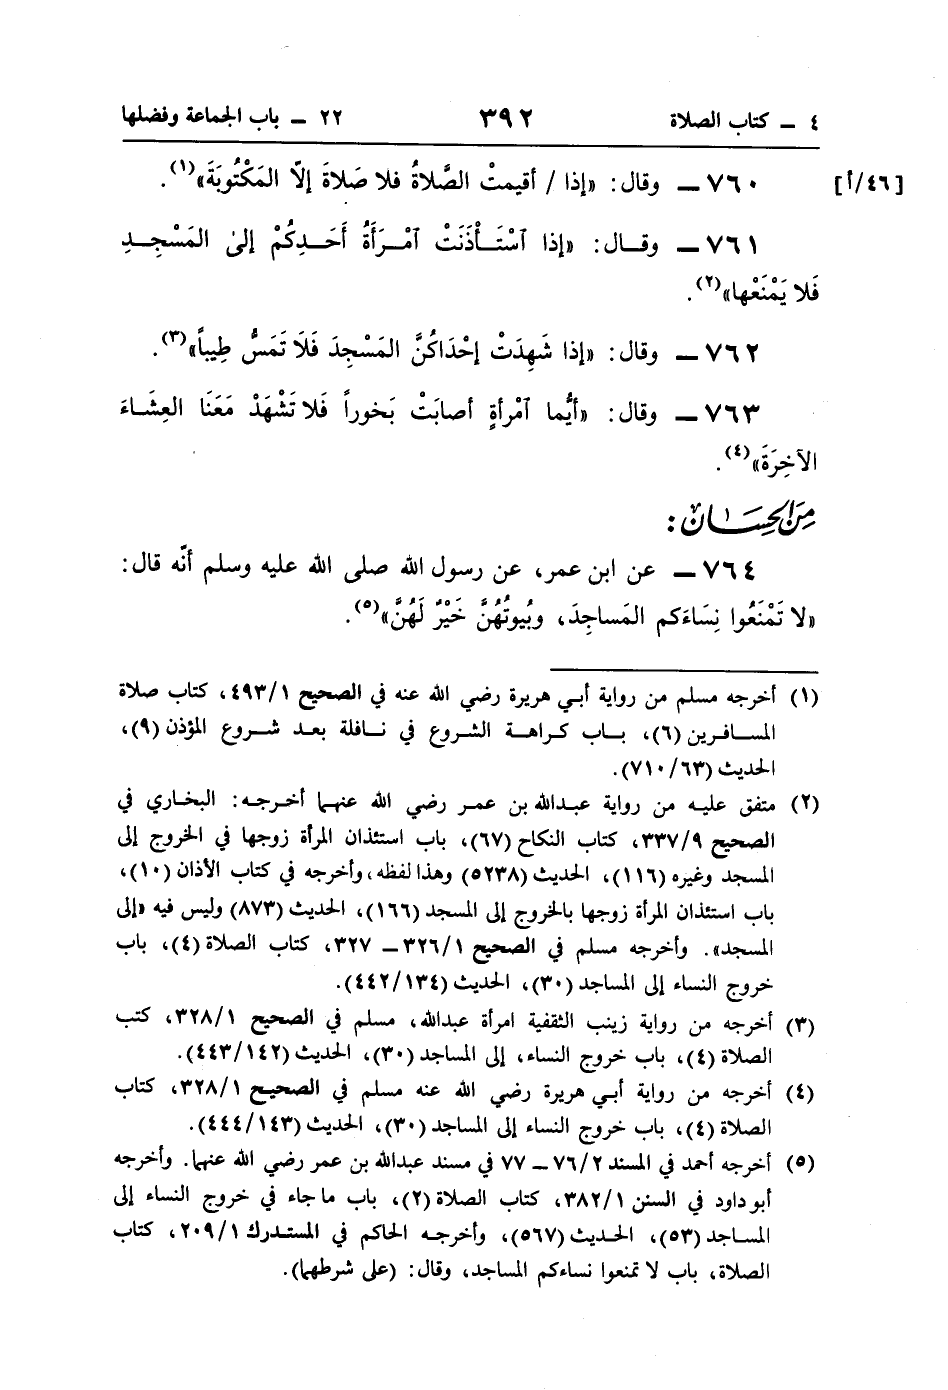 ٤ ــ كتاب الصلاة ٣٩٢ ٢٢ ــ باب الجماعة وفضلها
[٤٦/أ] ٧٦٠ ــ وقال: «إذا / أقيمتْ الصَّلاةُ فلا صَلاةَ إلّا المَكْتُوبَةَ»(١).
٧٦١ ــ وقــال: «إذا ٱسْتَــأْذَنَتْ ٱمْــرَأَةُ أَحَــدِكُمْ إلىٰ المَسْجِــدِ
فَلا يَمْنَعْها»(٢).
٧٦٢ ــ وقال: «إذا شَهِدَتْ إحْدَاكُنَّ المَسْجِدَ فَلَا تَمَسُّ طِيباً»(٣).
٧٦٣ ــ وقال: «أيُّما ٱمْرأةٍ أصابَتْ بَخوراً فَلا تَشْهَدْ مَعَنَا العِشَاءَ
الآخِرَةَ»(٤).
مِنَ الحِسَان:
٧٦٤ ــ عن ابن عمر، عن رسول الله صلى الله عليه وسلم أنّه قال:
«لا تَمْنَعُوا نِسَاءَكم المَساجِدَ، وبُيوتُهُنَّ خَيْرٌ لَهُنَّ»(٥).
(١) أخرجه مسلم من رواية أبي هريرة رضي الله عنه في الصحيح ٤٩٣/١، كتاب صلاة
المســافرين (٦)، بــاب كراهــة الشروع في نــافلة بعــد شــروع المؤذن (٩)،
الحديث (٧١٠/٦٣).
(٢) متفق عليــه من رواية عبــدالله بن عمــر رضي الله عنهــا أخــرجــه: البخــاري في
الصحيح ٣٣٧/٩، كتاب النكاح (٦٧)، باب استئذان المرأة زوجها في الخروج إلى
المسجد وغيره (١١٦)، الحديث (٥٢٣٨) وهذا لفظه، وأخرجه في كتاب الأذان (١٠)،
باب استئذان المرأة زوجها بالخروج إلى المسجد (١٦٦)، الحديث (٨٧٣) وليس فيه «إلى
المسجد». وأخرجه مسلم في الصحيح ٣٢٦/١ ــ ٣٢٧، كتاب الصلاة (٤)، باب
خروج النساء إلى المساجد (٣٠)، الحديث (٤٤٢/١٣٤).
(٣) أخرجه من رواية زينب الثقفية امرأة عبدالله، مسلم في الصحيح ٣٢٨/١، كتب
الصلاة (٤)، باب خروج النساء، إلى المساجد (٣٠)، الحديث (٤٤٣/١٤٢).
(٤) أخرجه من رواية أبي هريرة رضي الله عنه مسلم في الصحيح ٣٢٨/١، كتاب
الصلاة (٤)، باب خروج النساء إلى المساجد (٣٠)، الحديث (٤٤٤/١٤٣).
(٥) أخرجه أحمد في المسند ٧٦/٢ ــ ٧٧ في مسند عبدالله بن عمر رضي الله عنهما. وأخرجه
أبو داود في السنن ٣٨٢/١، كتاب الصلاة (٢)، باب ما جاء في خروج النساء إلى
المساجد (٥٣)، الحديث (٥٦٧)، وأخرجه الحاكم في المستدرك ٢٠٩/١، كتاب
الصلاة، باب لا تمنعوا نساءكم المساجد، وقال: (على شرطهما).